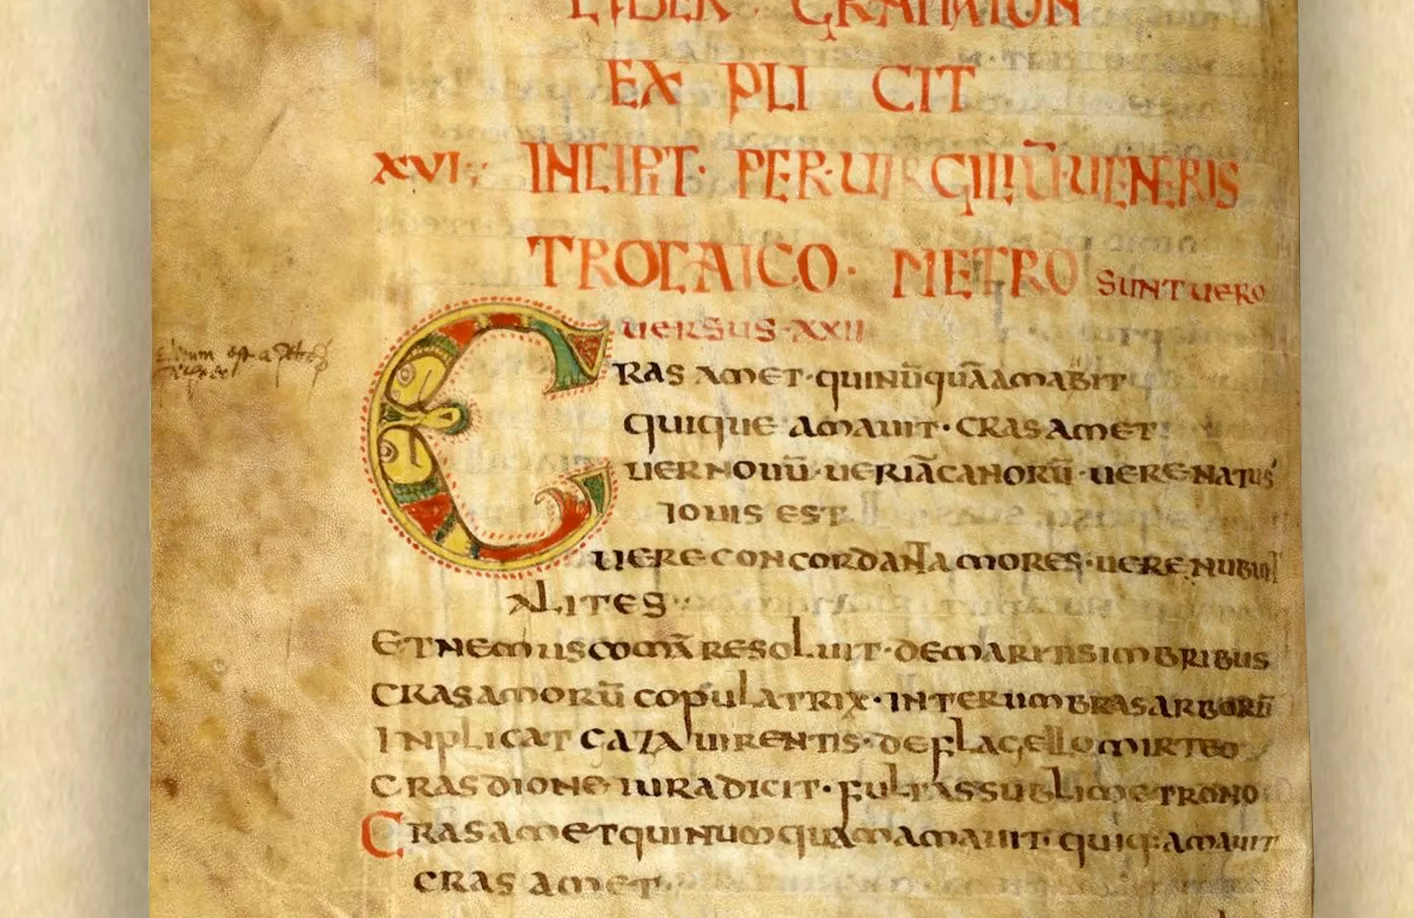 LIBER · GRAMMATON
EX PLI CIT
XVI; INCIPIT· PER·UIRGILIŪ·UENERIS
TROCAICO· METRO SUNT UERO
UERSUS·XXII
CRAS AMET·QUINŪQUĀAMABIT
QUIQUE AMAUIT·CRAS AMET:
UER NOUŪ·UERIĀCANORŪ·UERE·NATUS
IOUIS EST
UERE CONCORDANTAMORES·UERE NUBUNT
ALITES
ETNEMUSCOMĀ RESOLUIT·DEMARITISIMBRIBUS
CRASAMORŪ COPULATRIX·INTERUMBRASARBORŪ
INPLICAT CAZA UIRENTIS·DEFLAGELLOMIRTEO
CRASDIONE IURADICIT·FULTASSUBLIMETRONO
CRASAMETQUINUMQUAMAMAUIT·QUIQ:AMAUIT
CRAS AMET·